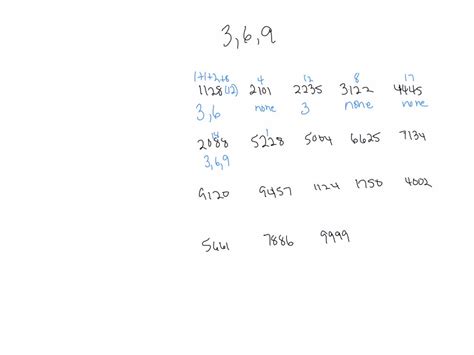 3,6,9
1+1+2+8 4 12 8 17
1128 (12) 2101 2235 3122 4445
3,6 none 3 none none
2088 5228 5004 6625 7134
3,6,9
9120 9457 1124 1750 4002
5661 7886 9999